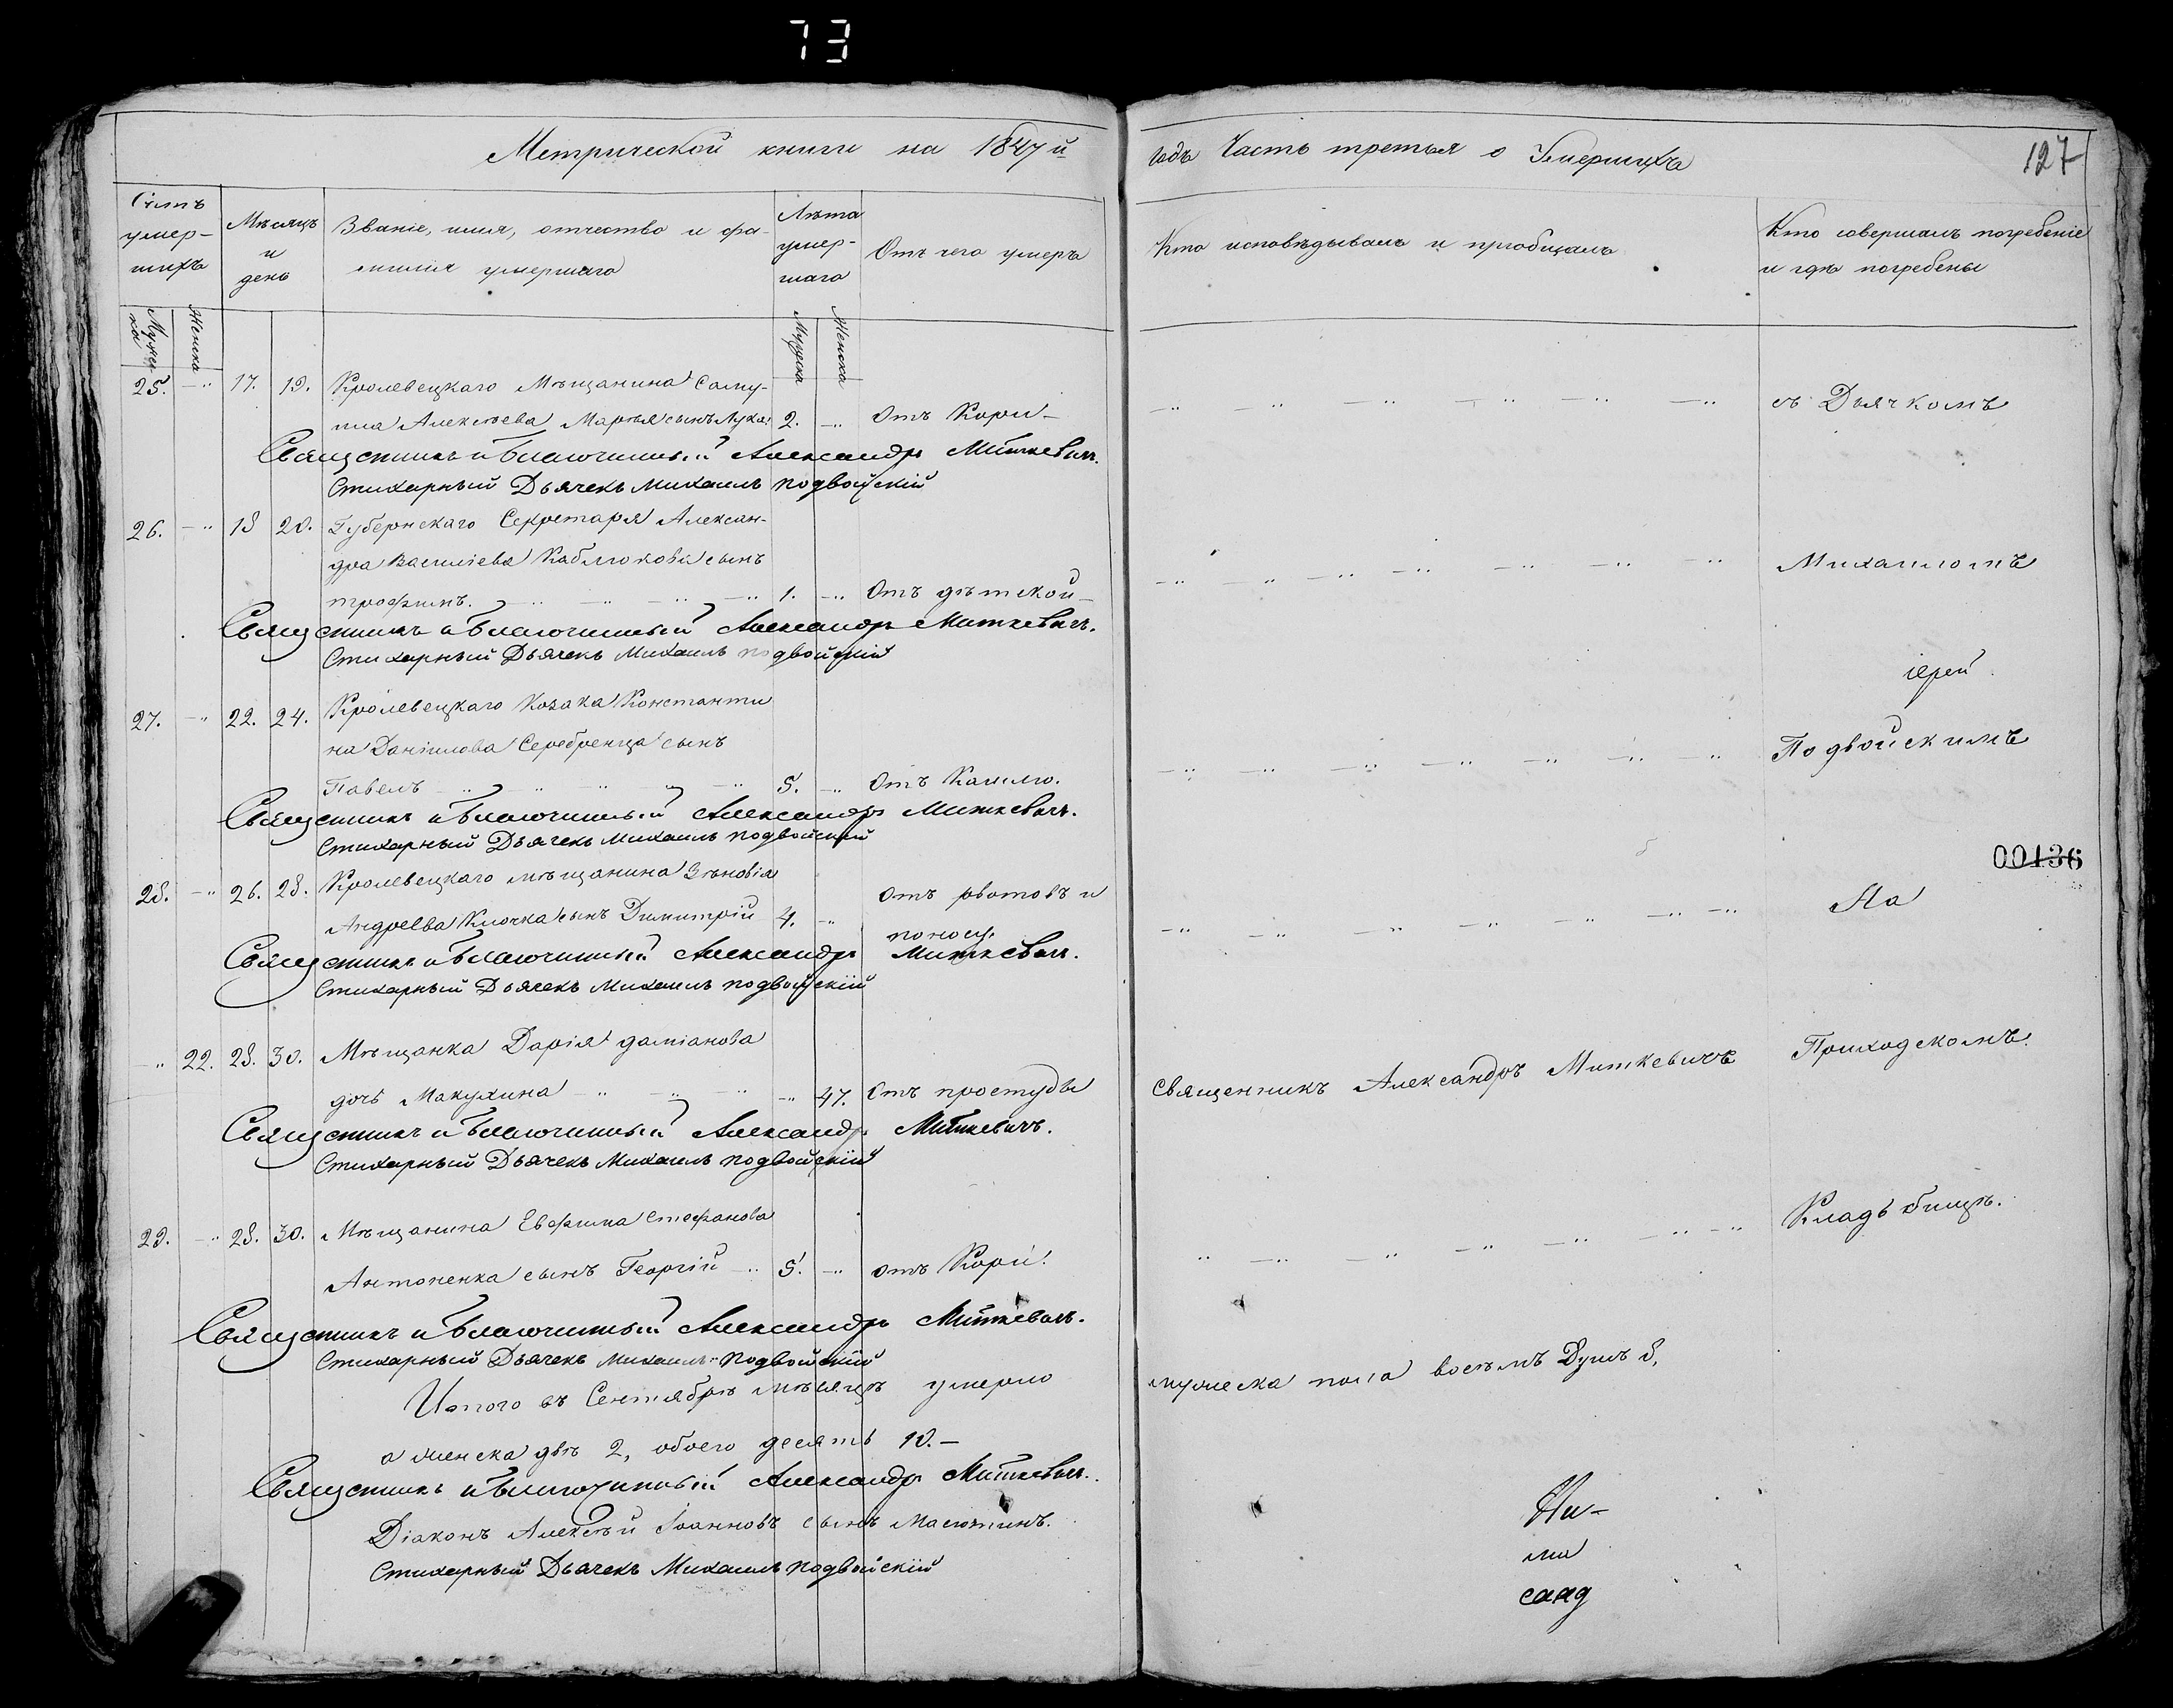 73
Метрической книги на 1847й
годъ Часть третья о Умершихъ
127
Счетъ умер-шихъ
Мѣсяцъ и день
Званіе, имя, отчество и фа-
милія умершаго
Лѣта умер-шаго
Отъ чего умеръ
Кто исповѣдывалъ и пріобщалъ
Кто совершалъ погребеніе
и гдѣ погребены
Мужеска
Женска
Мужеска
Женска
25. —„ 17. 19. Кролевецкаго Мѣщанина
Алексѣева сынъ Лука 2. —„ Отъ Кори —
съ Дьячкомъ
Священникъ и Благочинный Александръ Миткевичъ.
Стихарный Дьячекъ Михаилъ Подвойскій
26. —„ 18 20. Губернскаго Секретаря Алексан-
дра Василіева Каблюкова сынъ
трофимъ. 1. —„ Отъ дѣтской —
Михаиломъ
Священникъ и Благочинный Александръ Миткевичъ.
Стихарный Дьячекъ Михаилъ подвойскій
іерей
27. —„ 22. 24. Кролевецкаго Козака Константи
на Даніилова Серебренца сынъ
Павелъ 5. —„ Отъ Кашлю.
Подвойскимъ
Священникъ и Благочинный Александръ Миткевичъ.
Стихарный Дьячекъ Михаилъ подвойскій
00136
28. —„ 26. 28. Кролевецкаго мѣщанина Зѣновія
Андреева Клочка сынъ Димитрій 4. —„ отъ рвотовъ и
поносу.
На
Священникъ и Благочинный Александръ Миткевичъ.
Стихарный Дьячекъ Михаилъ подвойскій
—„ 22. 28. 30. Мѣщанка Дарія даміанова
дочь Макухина —„ 47. Отъ простуды
Священникъ Александръ Миткевичъ
Приходскомъ
Священникъ и Благочинный Александръ Миткевичъ.
Стихарный Дьячекъ Михаилъ подвойскій
29. —„ 28. 30. Мѣщанина Евфима стефанова
Антоненка сынъ Георгій 5. —„ отъ Кори.
Кладъбищѣ.
Священникъ и Благочинный Александръ Миткевичъ.
Стихарный Дьячекъ Михаилъ Подвойскій
Итого въ Сентябрѣ мѣсяцѣ умерло
мужеска пола восемъ Душъ 8,
а женска двѣ 2, обоего десять 10.—
Священникъ и Благочинный Александръ Миткевичъ.
Діаконъ Алексѣй Іоанновъ сынъ Маслотинъ.
Стихарный Дьячекъ Михаилъ подвойскій